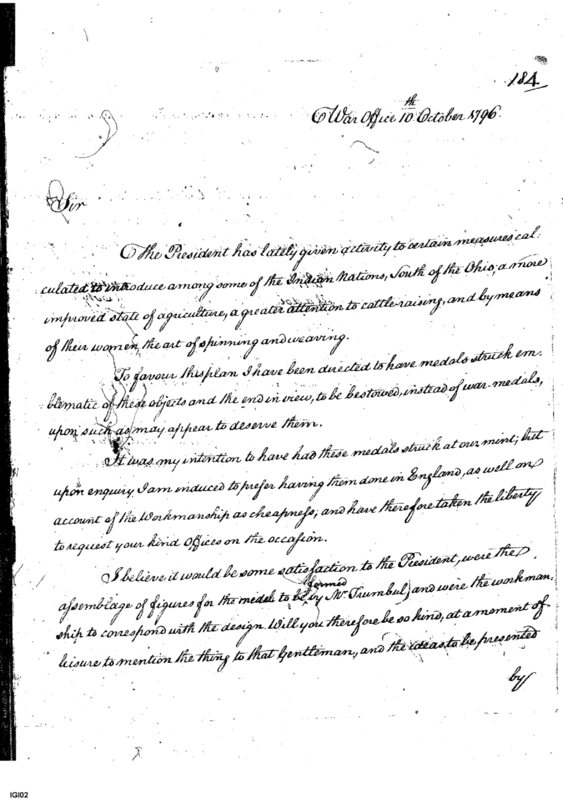 184
War Office 10th October 1796.
Sir
The President has lately given activity to certain measures cal:
culated to introduce among some of the Indian Nations, South of the Ohio, a more
improved state of agriculture, a greater attention to cattle raising, and by means
of their women, the art of spinning and weaving.
To favour this plan I have been directed to have medals struck em:
blematic of these objects and the end in view, to be bestowed, instead of war medals,
upon such as may appear to deserve them.
It was my intention to have had these medals struck at our mint; but
upon enquiry I am induced to prefer having them done in England, as well on
account of the workmanship as cheapness; and have therefore taken the liberty
to request your kind offices on the occasion.
I believe it would be some satisfaction to the President, were the
assemblage of figures for the medal to be formed by Mr. Trumbul, and were the workman:
ship to correspond with the design. Will you therefore be so kind, at a moment of
leisure to mention the thing to that Gentleman, and the ideas to be presented
by
IGI02